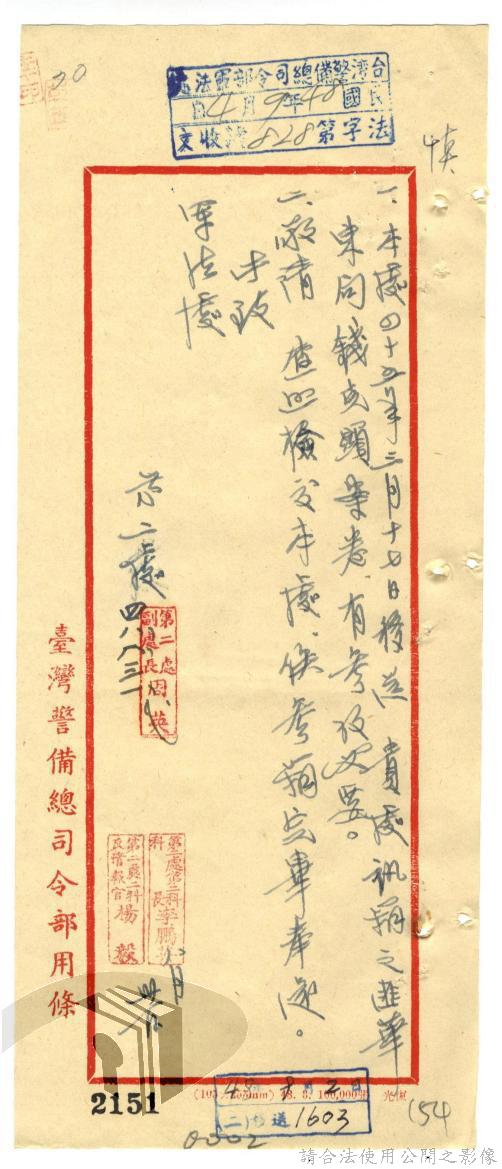 台灣警備總司令部軍法處
民國48年9月4日
法字第828號收文
一、本處四十五年三月十七日移送 貴處訊辦之匪華
東局錢克顯案卷,有參攷必要。
二、敬請 查照檢交本處,俟參辦完畢奉還。
此致
軍法處
第二處 四八、八、三一
第二處
副處長周英
第二處第二科
科長李鵬
第二處二科
反情報官楊毅
臺灣警備總司令部用條
2151
48. 8. 100,000
48年 月2日
送1603
0002
154
請合法使用公開之影像